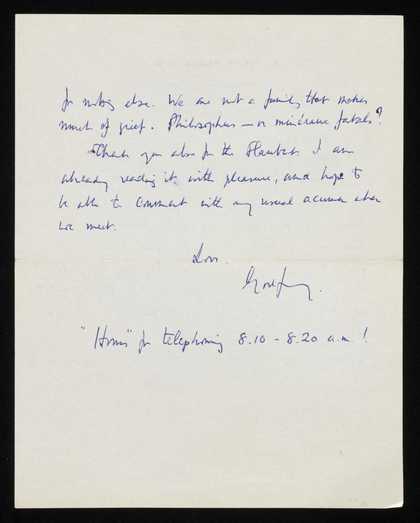 for nothing else. We are not a family that makes
much of grief. Philosophers — or miserable fatals?
Thank you also for the Flaubert. I am
already reading it with pleasure, and hope to
be able to comment with my usual acumen when
we meet.
Love.
Godfrey.
"Hours" for telephoning 8.10 - 8.20 a.m.!